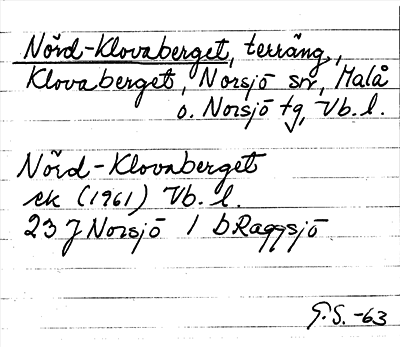 Nörd-Klovaberget, terräng,
Klovaberget, Norsjö sn, Malå
o. Norsjö tg, Vb. l.
Nörd-Klovaberget
ek (1961) Vb. l.
23 J Norsjö 1 b Raggsjö
G.S. -63